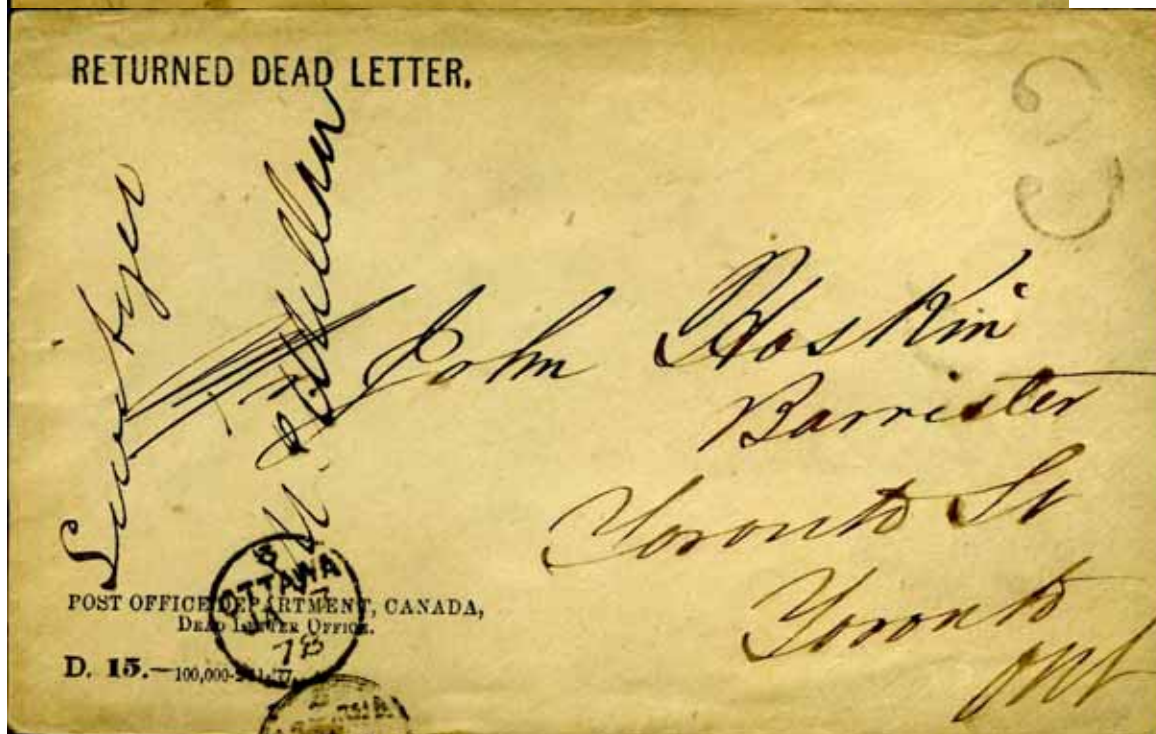 RETURNED DEAD LETTER.
3
John Hoskin
Barrister
Toronto St
Toronto
Ont
OTTAWA
POST OFFICE DEPARTMENT, CANADA,
DEAD LETTER OFFICE.
D. 15.—100,000-